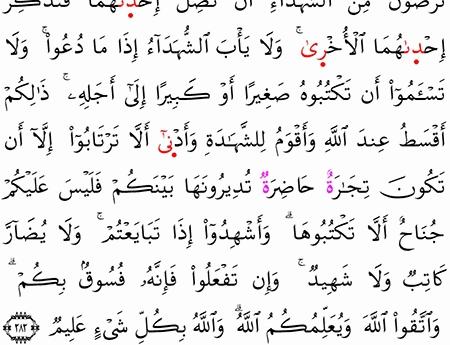 ترضون من الشهداء ان تضل إحدىهما فتذكر
إِحْدىٰهُمَا ٱلْأُخْرىٰ ۚ وَلَا يَأْبَ ٱلشُّهَدَآءُ إِذَا مَا دُعُوا۟ ۚ وَلَا
تَسْـَٔمُوٓا۟ أَن تَكْتُبُوهُ صَغِيرًا أَوْ كَبِيرًا إِلَىٰٓ أَجَلِهِۦ ۚ ذَٰلِكُمْ
أَقْسَطُ عِندَ ٱللَّهِ وَأَقْوَمُ لِلشَّهَٰدَةِ وَأَدْنىٰٓ أَلَّا تَرْتَابُوٓا۟ إِلَّآ أَن
تَكُونَ تِجَٰرَةٌ حَاضِرَةٌ تُدِيرُونَهَا بَيْنَكُمْ فَلَيْسَ عَلَيْكُمْ
جُنَاحٌ أَلَّا تَكْتُبُوهَا ۗ وَأَشْهِدُوٓا۟ إِذَا تَبَايَعْتُمْ ۚ وَلَا يُضَآرَّ
كَاتِبٌ وَلَا شَهِيدٌ ۚ وَإِن تَفْعَلُوا۟ فَإِنَّهُۥ فُسُوقٌۢ بِكُمْ ۗ
وَٱتَّقُوا۟ ٱللَّهَ ۖ وَيُعَلِّمُكُمُ ٱللَّهُ ۗ وَٱللَّهُ بِكُلِّ شَىْءٍ عَلِيمٌ ٢٨٢